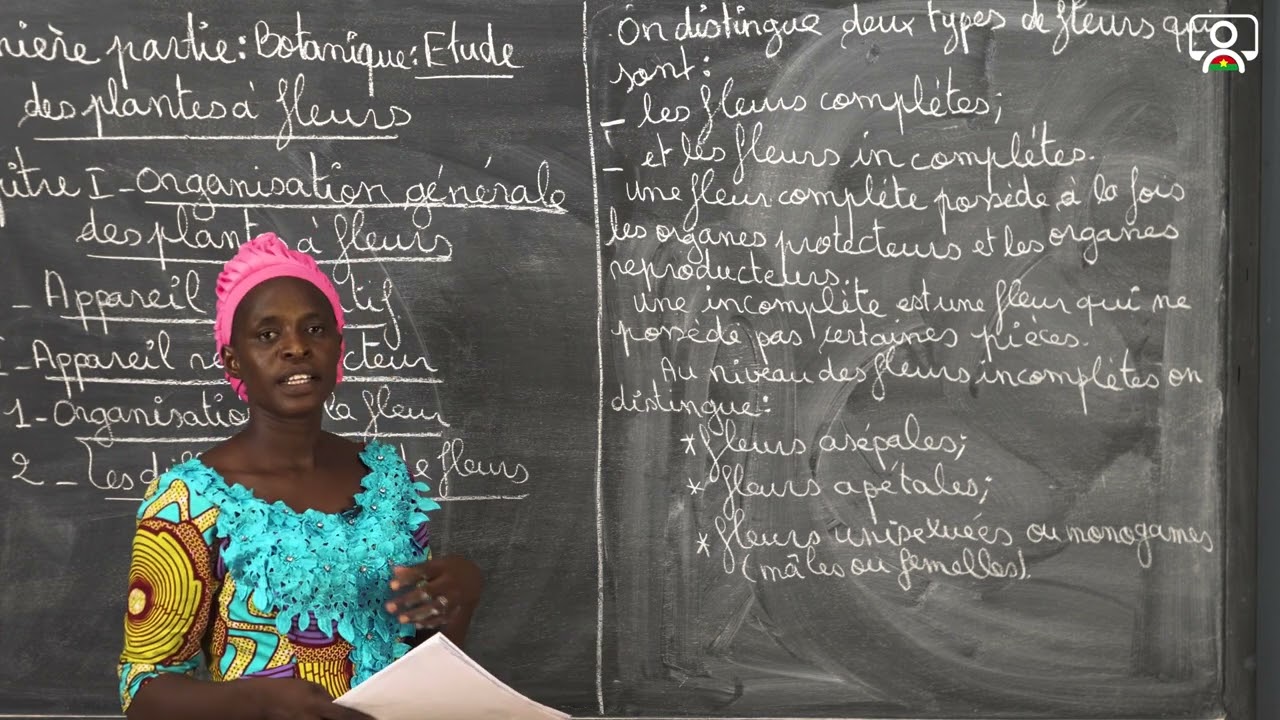 nière partie: Botanique: Etude
des plantes à fleurs
pitre I - Organisation générale
des plant à fleurs
- Appareil tif
I - Appareil re cteur
1 - Organisatio la fleur
2 - Les di e fleurs
On distingue deux types de fleurs qui
sont:
- les fleurs complètes;
- et les fleurs incomplètes.
- une fleur complète possède à la fois
les organes protecteurs et les organes
reproducteurs.
une incomplète est une fleur qui ne
possède pas certaines pièces.
Au niveau des fleurs incomplètes on
distingue:
* fleurs asépales;
* fleurs apétales;
* fleurs unisexuées ou monogames
(mâles ou femelles).